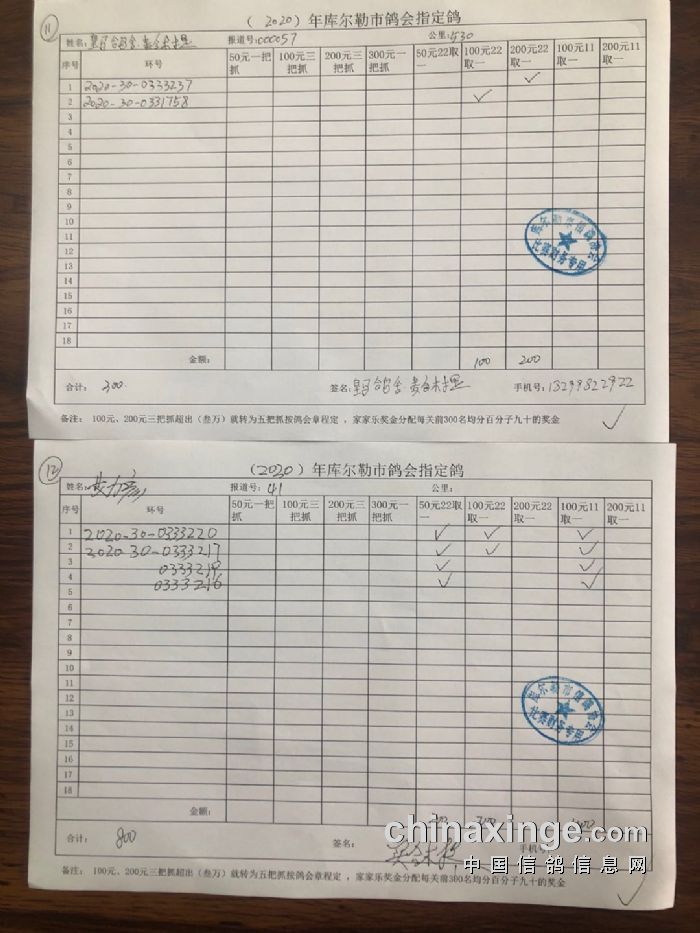 11
（ 2020 ）年库尔勒市鸽会指定鸽
姓名: 报道号:000057 公里:530
序号 环号 50元一把抓 100元三把抓 200元三把抓 300元一把抓 50元22取一 100元22取一 200元22取一 100元11取一 200元11取一
1 2020-30-0333237 ✓
2 2020-30-0331758 ✓
3
4
5
6
7
8
9
10
11
12
13
14
15
16
17
18
金额: 100 200
合计: 300 签名: 手机号:13299822922
备注： 100元、200元三把抓超出（叁万）就转为五把抓按鸽会章程定 ，家家乐奖金分配每关前300名均分百分子九十的奖金
库尔勒市信鸽协会
比赛财务专用
12
（2020）年库尔勒市鸽会指定鸽
姓名: 报道号: 41 公里:
序号 环号 50元一把抓 100元三把抓 200元三把抓 300元一把抓 50元22取一 100元22取一 200元22取一 100元11取一 200元11取一
1 2020-30-0333220 ✓ ✓ ✓
2 2020-30-0333217 ✓ ✓ ✓
3 0333219 ✓ ✓
4 0333216 ✓ ✓
5
6
7
8
9
10
11
12
13
14
15
16
17
18
金额: 200
合计: 800 签名: 手机号:
备注： 100元、200元三把抓超出（叁万）就转为五把抓按鸽会章程定 ，家家乐奖金分配每关前300名均分百分子九十的奖金
库尔勒市信鸽协会
比赛财务专用
chinaxinge.com
中国信鸽信息网